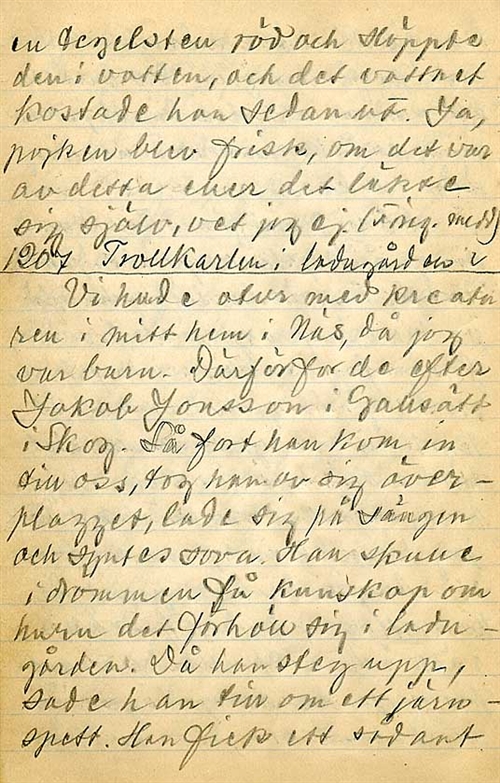 en tegelsten röd och släppte
den i vatten, och det vattnet
kostade han sedan ut. Ja,
pojken blev frisk, om det var
av detta eller det läkte
sig själv, vet jag ej. (Föreg. medd)
1207 Trollkarlen i ladugården
Vi hade otur med kreatu
ren i mitt hem i Näs, då jag
var barn. Därför for de efter
Jakob Jonsson i Gallsätt
i Skog. Så fort han kom in
till oss, tog han av sig över-
plagget, lade sig på sängen
och syntes sova. Han skulle
i drömmen få kunskap om
huru det förhöll sig i ladu-
gården. Då han steg upp,
sade han till om ett järn-
spett. Han fick ett sådant